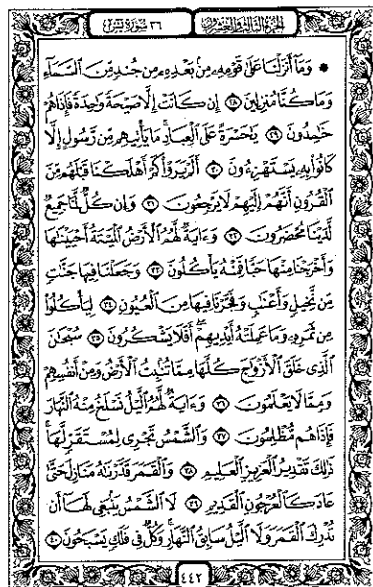 الجزء الثالث والعشرون ٣٦ سورة يس
۞ وَمَآ أَنزَلْنَا عَلَىٰ قَوْمِهِۦ مِنۢ بَعْدِهِۦ مِن جُندٍ مِّنَ ٱلسَّمَآءِ
وَمَا كُنَّا مُنزِلِينَ ٢٨ إِن كَانَتْ إِلَّا صَيْحَةً وَٰحِدَةً فَإِذَا هُمْ
خَٰمِدُونَ ٢٩ يَٰحَسْرَةً عَلَى ٱلْعِبَادِ مَا يَأْتِيهِم مِّن رَّسُولٍ إِلَّا
كَانُوا۟ بِهِۦ يَسْتَهْزِءُونَ ٣٠ أَلَمْ يَرَوْا۟ كَمْ أَهْلَكْنَا قَبْلَهُم مِّنَ
ٱلْقُرُونِ أَنَّهُمْ إِلَيْهِمْ لَا يَرْجِعُونَ ٣١ وَإِن كُلٌّ لَّمَّا جَمِيعٌ
لَّدَيْنَا مُحْضَرُونَ ٣٢ وَءَايَةٌ لَّهُمُ ٱلْأَرْضُ ٱلْمَيْتَةُ أَحْيَيْنَٰهَا
وَأَخْرَجْنَا مِنْهَا حَبًّا فَمِنْهُ يَأْكُلُونَ ٣٣ وَجَعَلْنَا فِيهَا جَنَّٰتٍ
مِّن نَّخِيلٍ وَأَعْنَٰبٍ وَفَجَّرْنَا فِيهَا مِنَ ٱلْعُيُونِ ٣٤ لِيَأْكُلُوا۟
مِن ثَمَرِهِۦ وَمَا عَمِلَتْهُ أَيْدِيهِمْ أَفَلَا يَشْكُرُونَ ٣٥ سُبْحَٰنَ
ٱلَّذِى خَلَقَ ٱلْأَزْوَٰجَ كُلَّهَا مِمَّا تُنۢبِتُ ٱلْأَرْضُ وَمِنْ أَنفُسِهِمْ
وَمِمَّا لَا يَعْلَمُونَ ٣٦ وَءَايَةٌ لَّهُمُ ٱلَّيْلُ نَسْلَخُ مِنْهُ ٱلنَّهَارَ
فَإِذَا هُم مُّظْلِمُونَ ٣٧ وَٱلشَّمْسُ تَجْرِى لِمُسْتَقَرٍّ لَّهَا
ذَٰلِكَ تَقْدِيرُ ٱلْعَزِيزِ ٱلْعَلِيمِ ٣٨ وَٱلْقَمَرَ قَدَّرْنَٰهُ مَنَازِلَ حَتَّىٰ
عَادَ كَٱلْعُرْجُونِ ٱلْقَدِيمِ ٣٩ لَا ٱلشَّمْسُ يَنۢبَغِى لَهَآ أَن
تُدْرِكَ ٱلْقَمَرَ وَلَا ٱلَّيْلُ سَابِقُ ٱلنَّهَارِ وَكُلٌّ فِى فَلَكٍ يَسْبَحُونَ ٤٠
٤٤٢